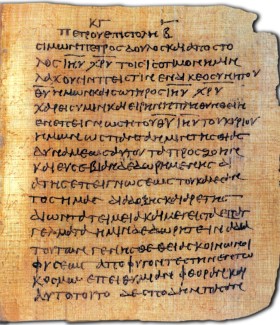 ΚΓ
ΠΕΤΡΟΥ ΕΠΙСΤΟΛΗ Β
СΙΜΩΝ ΠΕΤΡΟС ΔΟΥΛΟС ΚΑΙ ΑΠΟСΤΟ
ΛΟС ΙΗΥ ΧΡΥ ΤΟΙС ΙСΟΤΙΜΟΝ ΗΜΙΝ
ΛΑΧΟΥСΙΝ ΠΙСΤΙΝ ΕΝ ΔΙΚΕΟСΥΝΗ ΤΟΥ
ΘΥ ΗΜΩΝ ΚΑΙ СΩΤΗΡΟС ΙΗΥ ΧΡΥ
ΧΑΡΕΙС ΥΜΙΝ ΚΑΙ ΕΙΡΗΝΗ ΠΛΗΘΥΝΘΕΙΗ
ΕΝ ΕΠΕΙΓΝΩСΙ ΤΟΥ ΘΥ ΙΗΥ ΤΟΥ ΚΥΡΙΟΥ
ΗΜΩΝ ΩС ΠΑΝΤΑ ΗΜΙΝ ΤΗС ΘΕΙΑС
ΔΥΝΑΜΕΩС ΑΥΤΟΥ ΤΑ ΠΡΟС ΖΩΗΝ
ΚΑΙ ΕΥСΕΒΙΑΝ ΔΕΔΩΡΗΜΕΝΗС ΔΙ
Α ΤΗС ΕΠΕΙΓΝΩСΕΩС ΤΟΥ ΚΑΛΕСΑΝ
ΤΟС ΗΜΑС ΔΙΑ ΔΟΞΗС ΚΑΙ ΑΡΕΤΗС
ΔΙ ΩΝ ΤΑ ΤΕΙΜΕΙΑ ΚΑΙ ΜΕΓΙСΤΑ ΕΠΑΓ
ΓΕΛΜΑΤΑ ΗΜΙΝ ΔΕΔΩΡΗΤΕ ΙΝΑ ΔΙΑ
ΤΟΥΤΩΝ ΓΕΝΗСΘΕ ΘΕΙΑС ΚΟΙΝΩΝΟΙ
ΦΥСΕΩС ΑΠΟΦΥΓΟΝΤΕС ΤΗΝ ΕΝ ΤΩ
ΚΟСΜΩ ΕΠΕΙΘΥΜΙΑΝ ΦΘΟΡΑС ΚΑΙ
ΑΥΤΟ ΤΟΥΤΟ ΔΕ